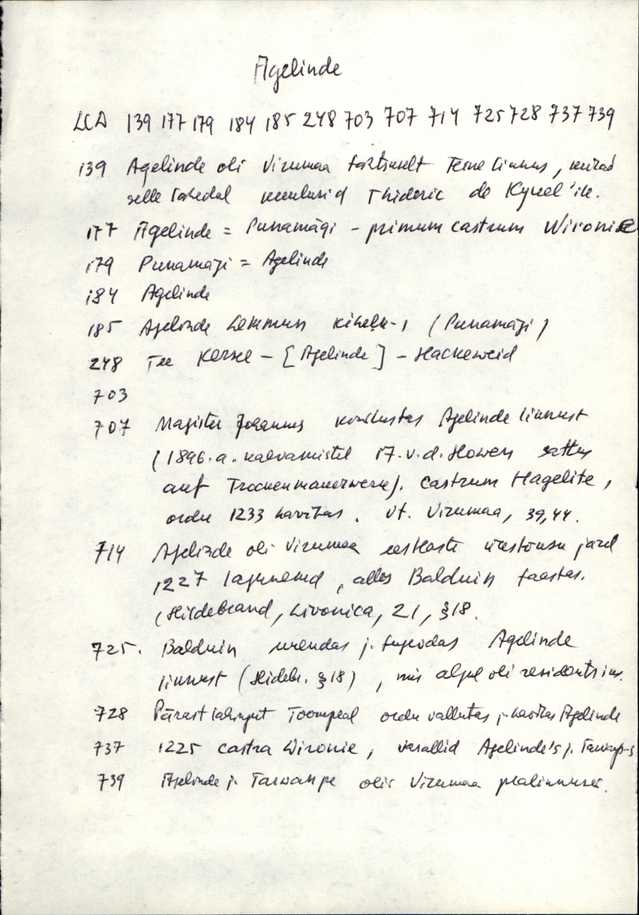 Agelinde
LCA 139 177 179 184 185 248 703 707 714 725 728 737 739
139 Agelinde oli Virumaa tähtsuselt teine linnus, mida
selle lähedal Thideric de Kyvel'ile.
177 Agelinde = Punamägi - primum castrum Wironie
179 Punamägi = Agelinde
184 Agelinde
185 Agelinde Lemmun kihelk-s (Punamägi)
248 Tee - [Agelinde] - Hackeweid
703
707 Magister Johannes kõneles Agelinde linnust
(1896.a. kaevamistel H.v.d.Howen sattus
auf Trockenmauerwerk). castrum Hagelite,
ordu 1233 hävitas. Vt. Virumaa, 39,44.
714 Agelinde oli Virumaa eestlaste ülestõusu järel
1227 lagunenud, alles Balduin taastas.
(Hildebrand, Livonica, 21, §18.
725. Balduin uuendas j. tugevdas Agelinde
linnust (Hildebr. §18), mis algul oli residents
728 Pärast lahingut Toompeal ordu vallutas j. hävitas Agelinde
737 1225 castra Wironie, vasallid Agelinde's j. Tarwanpe-s
739 Agelinde j. Tarwanpe olid Virumaa pealinnused.